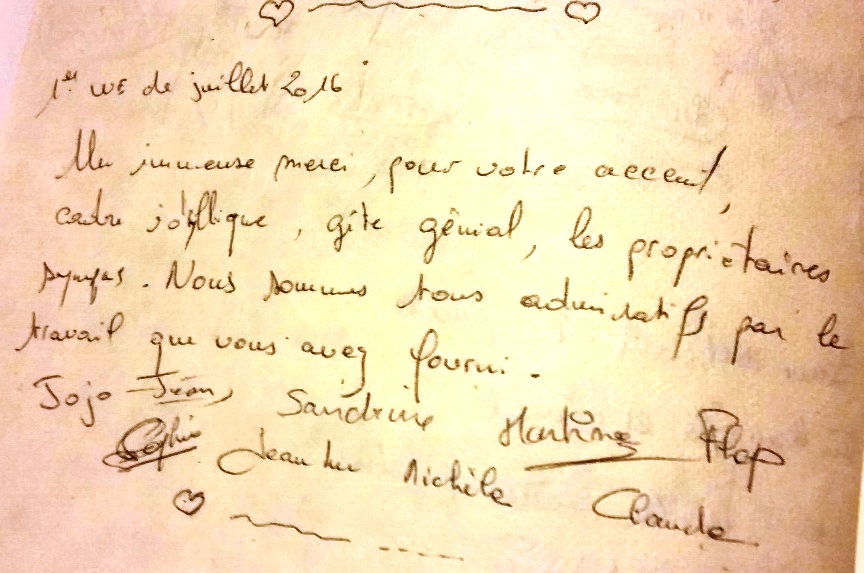 1er WE de juillet 2016
Un immense merci, pour votre accueil,
cadre idyllique, gîte génial, les propriétaires
sympas. Nous sommes tous admiratifs par le
travail que vous avez fourni.
Jojo Jean, Sandrine Martine Flop
Sophie Jean Luc Michèle Claude